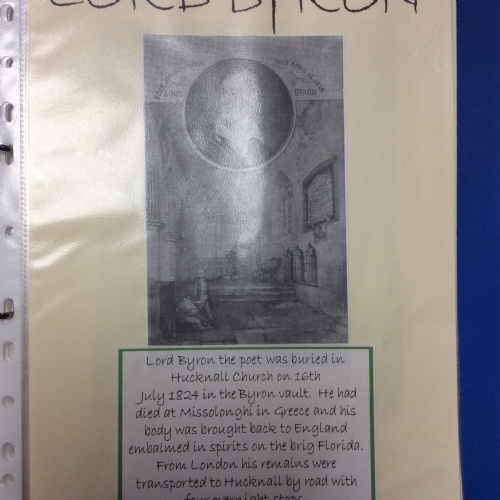 LORD BYRON
BYRON
Lord Byron the poet was buried in
Hucknall Church on 16th
July 1824 in the Byron vault. He had
died at Missolonghi in Greece and his
body was brought back to England
embalmed in spirits on the brig Florida.
From London his remains were
transported to Hucknall by road with
four overnight stops